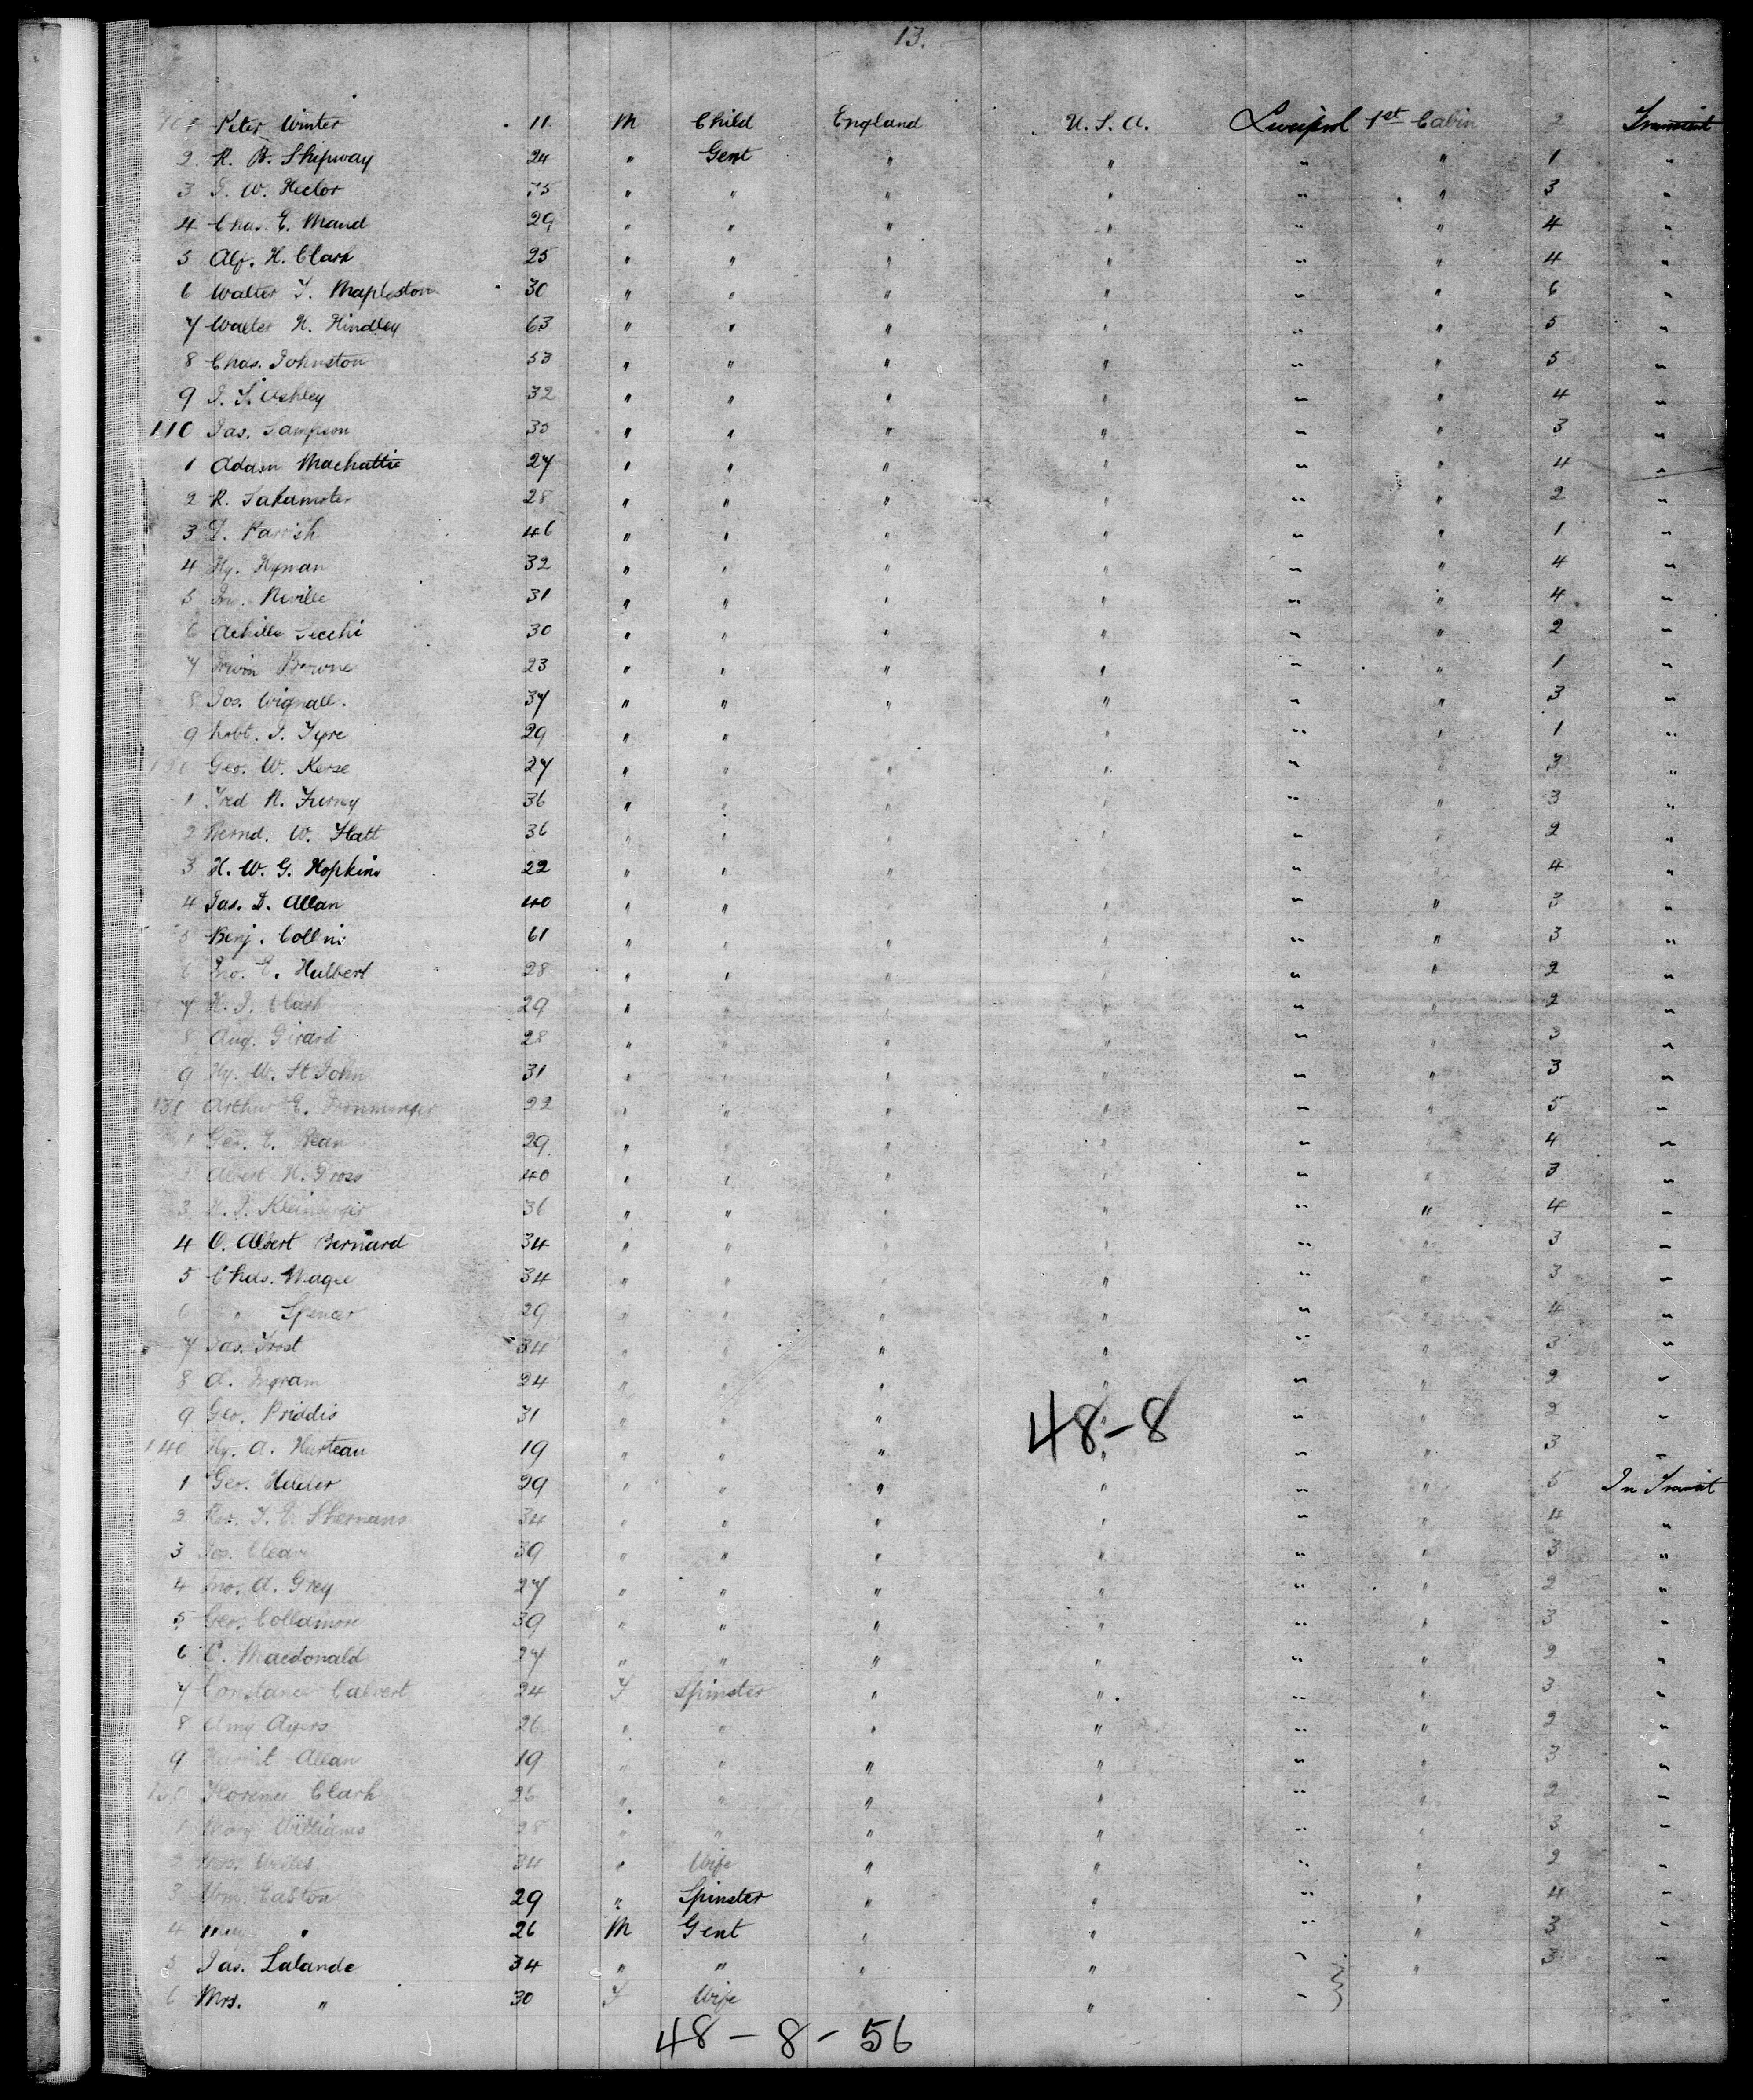 13.
101 Peter Winter 11 M Child England U.S.A. Liverpool 1st Cabin 2
2. R. B. Shipway 24 " Gent " " " " 1 "
3 W. Hector " " " " " " 3 "
4 Chas. E. Maud 29 " " " " " " 4 "
5 Alf. H. Clark 25 " " " " " " 4 "
6 Walter F. Maplestone 30 " " " " " " 6 "
7 Walter H. Hindley 63 " " " " " " 5 "
8 Chas. Johnston 53 " " " " " " 5 "
9 J. S. Ashley 32 " " " " " " 4 "
110 Jas. Sampson 35 " " " " " " 3 "
1 Adam Machattie 27 " " " " " " 4 "
2 R. 28 " " " " " " 2 "
3 Parrish 46 " " " " " " 1 "
4 Hy. Hyman 32 " " " " " " 4 "
5 Neville 31 " " " " " " 4 "
6 Achille Secchi 30 " " " " " " 2 "
7 Irwin Browne 23 " " " " " " 1 "
8 Jos. Wignall. 37 " " " " " " 3 "
9 Robt. J. Fyre 29 " " " " " 1 "
120 Geo. W. Kerse 27 " " " " " " 3 "
1 Fred N. Furney 36 " " " " " " 3 "
2 Bernd. W. Flatt 36 " " " " " " 2 "
3 H. W. G. Hopkins 22 " " " " " " 4 "
4 Jas. D. Allan 40 " " " " " " 3 "
5 Benj. Collins 61 " " " " " " 3 "
6 Jno. E. Hulbert 28 " " " " " " 2 "
7 H. J. Clark 29 " " " " " " 2 "
8 Aug. Girard 28 " " " " " " 3 "
9 Hy. W. St John 31 " " " " " " 3 "
130 Arthur E. Ironmonger 22 " " " " " " 5 "
1 Geo. E. Bean 29 " " " " " " 4 "
2 Albert H. 40 " " " " " " 3 "
3 Kleinberger 36 " " " " " " 4 "
4 O. Albert Bernard 34 " " " " " " 3 "
5 Chas. Magee 34 " " " " " " 3 "
6 " Spencer 29 " " " " " " 4 "
7 Jas. Frost 34 " " " " " " 3 "
8 A. Ingram 24 " " " " " " 2 "
9 Geo. Priddis 31 " " " " " " 2 "
48-8
140 Hy. A. Hurteau 19 " " " " " " 3 "
1 Geo. 29 " " " " " " 5 In Transit
2 Rev. 34 " " " " " " 4 "
3 Jos. 39 " " " " " " 3 "
4 Jno. A. Grey 27 " " " " " " 2 "
5 Geo. Collamore 39 " " " " " " 3 "
6 C. Macdonald 27 " " " " " " 2 "
7 Constance Calvert 24 F Spinster " " " " 3 "
8 Amy Ayers 26 " " " " " " 2 "
9 Allan 19 " " " " " " 3 "
150 Florence Clark 26 " " " " " " 2 "
1 Mary Williams 28 " " " " " " 3 "
2 34 " Wife " " " " 2 "
3 Wm. Easton 29 " Spinster " " " " 4 "
4 " 26 M Gent " " " " 3 "
5 Jas. Lalande 34 " " " " " " 3 "
6 Mrs. " 30 F Wife " " "
48-8-56